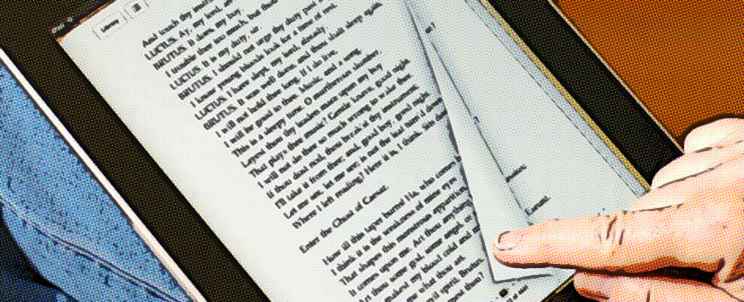 iPad
Library
And touch thy
LUCIUS. Ay, my lord, an't
BRUTUS. It does, my boy.
I trouble thee too much, but thou
LUCIUS. It is my duty, sir.
BRUTUS. I should not urge thy duty past
I know young bloods look for a time of rest.
LUCIUS. I have slept, my lord, already.
BRUTUS. It was well done, and thou shalt sleep again;
I will not hold thee long. If I do live,
I will be good to thee. Music, and a song.
This is a sleepy tune. O murtherous slumber,
Layest thou thy leaden mace upon my boy
That plays thee music? Gentle knave, good night.
I will not do thee so much wrong to wake thee.
If thou dost nod, thou break'st thy instrument;
I'll take it from thee; and, good boy, good night.
Let me see, let me see; is not the leaf turn'd down
Where I left reading? Here it is, I think. Sits
Enter the Ghost of Caesar.
How ill this taper burns! Ha, who comes
I think it is the weakness of mine eyes
That shapes this monstrous apparition.
It comes upon me. Art thou anything?
Art thou some god, some angel, or
makest my blood cold and
what thou art.
spirit, Brutus.
thou?
Exeunt.